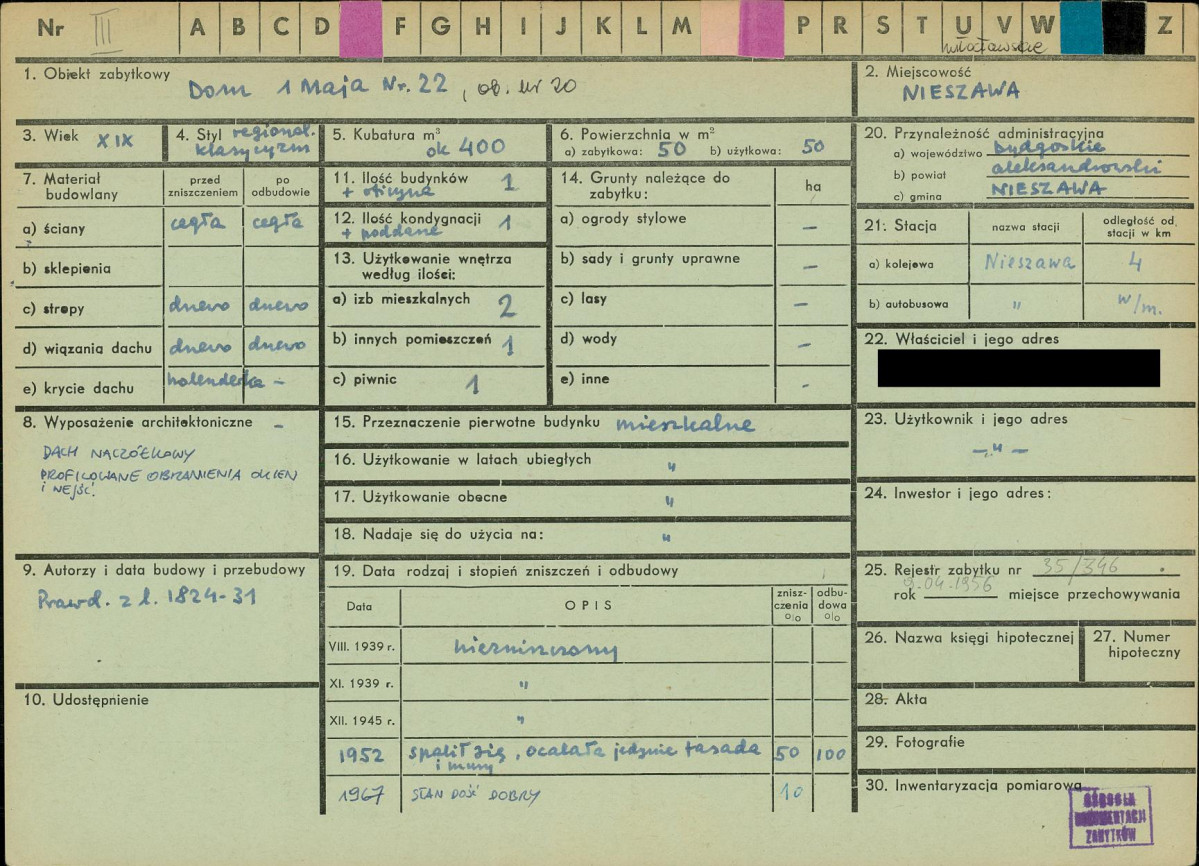 Nr III A B C D F G H I J K L M P R S T U V W Z
włocławskie
1. Obiekt zabytkowy
Dom 1 Maja Nr. 22, ob. nr 20
2. Miejscowość
NIESZAWA
3. Wiek XIX
4. Styl regional.
klasycyzm
5. Kubatura m³
ok 400
6. Powierzchnia w m²
a) zabytkowa: 50 b) użytkowa: 50
20. Przynależność administracyjna
a) województwo bydgoskie
b) powiat aleksandrowski
c) gmina NIESZAWA
7. Materiał
budowlany
przed
zniszczeniem
po
odbudowie
a) ściany cegła cegła
b) sklepienia
c) stropy drewo drewo
d) wiązania dachu drewo drewo
e) krycie dachu holenderka -
11. Ilość budynków 1
+ oficyna
12. Ilość kondygnacji 1
+ poddasze
13. Użytkowanie wnętrza
według ilości:
a) izb mieszkalnych 2
b) innych pomieszczeń 1
c) piwnic 1
14. Grunty należące do
zabytku:
ha
a) ogrody stylowe -
b) sady i grunty uprawne -
c) lasy -
d) wody -
e) inne -
21. Stacja
nazwa stacji
odległość od
stacji w km
a) kolejowa Nieszawa 4
b) autobusowa " w/m.
22. Właściciel i jego adres
23. Użytkownik i jego adres
-"-
24. Inwestor i jego adres:
8. Wyposażenie architektoniczne -
DACH NACZÓŁKOWY
PROFILOWANE OBRAMIENIA OKIEN
I WEJŚĆ.
15. Przeznaczenie pierwotne budynku mieszkalne
16. Użytkowanie w latach ubiegłych "
17. Użytkowanie obecne "
18. Nadaje się do użycia na: "
9. Autorzy i data budowy i przebudowy
Prawd. z l. 1824-31
10. Udostępnienie
19. Data rodzaj i stopień zniszczeń i odbudowy
Data
OPIS
znisz-
czenia
%
odbu-
dowa
%
VIII. 1939 r. niezniszczony
XI. 1939 r. "
XII. 1945 r. "
1952 spalił się, ocalała jedynie fasada 50 100
i mury
1967 STAN DOŚĆ DOBRY 10
25. Rejestr zabytku nr 35/346
rok 9.04.1956 miejsce przechowywania
26. Nazwa księgi hipotecznej
27. Numer
hipoteczny
28. Akta
29. Fotografie
30. Inwentaryzacja pomiarowa
OŚRODEK
DOKUMENTACJI
ZABYTKÓW